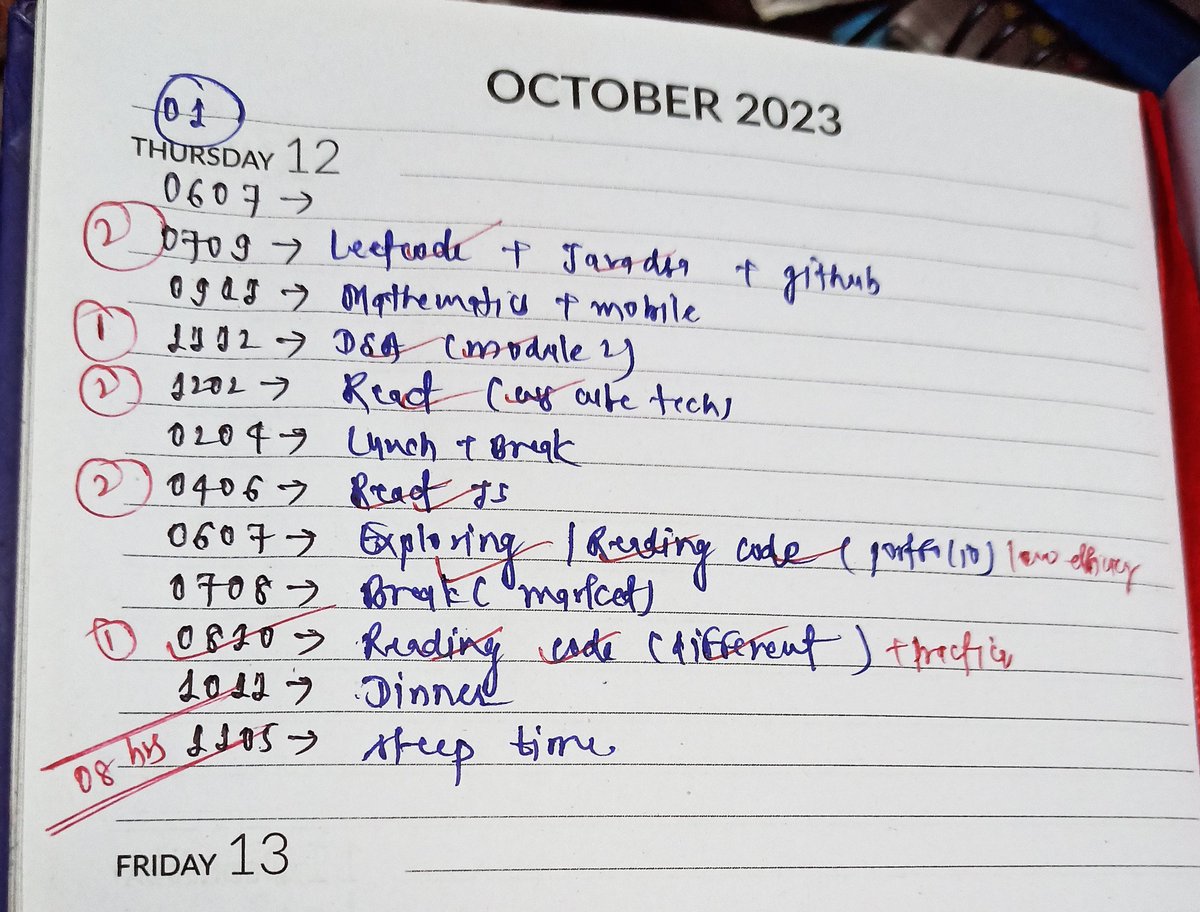 OCTOBER 2023
01
THURSDAY 12
0607 →
2 0709 → Leetcode + Javadsa + github
0911 → Mathematics + mobile
1 1112 → DSA (module 2)
2 1202 → React ( cube tech)
0204 → Lunch + Break
2 0406 → React JS
0607 → Exploring / Reading code (portfolio) low
0708 → Break ( market)
1 0810 → Reading code (different) + Practice
1011 → Dinner
1105 → sleep time
08 hrs
FRIDAY 13